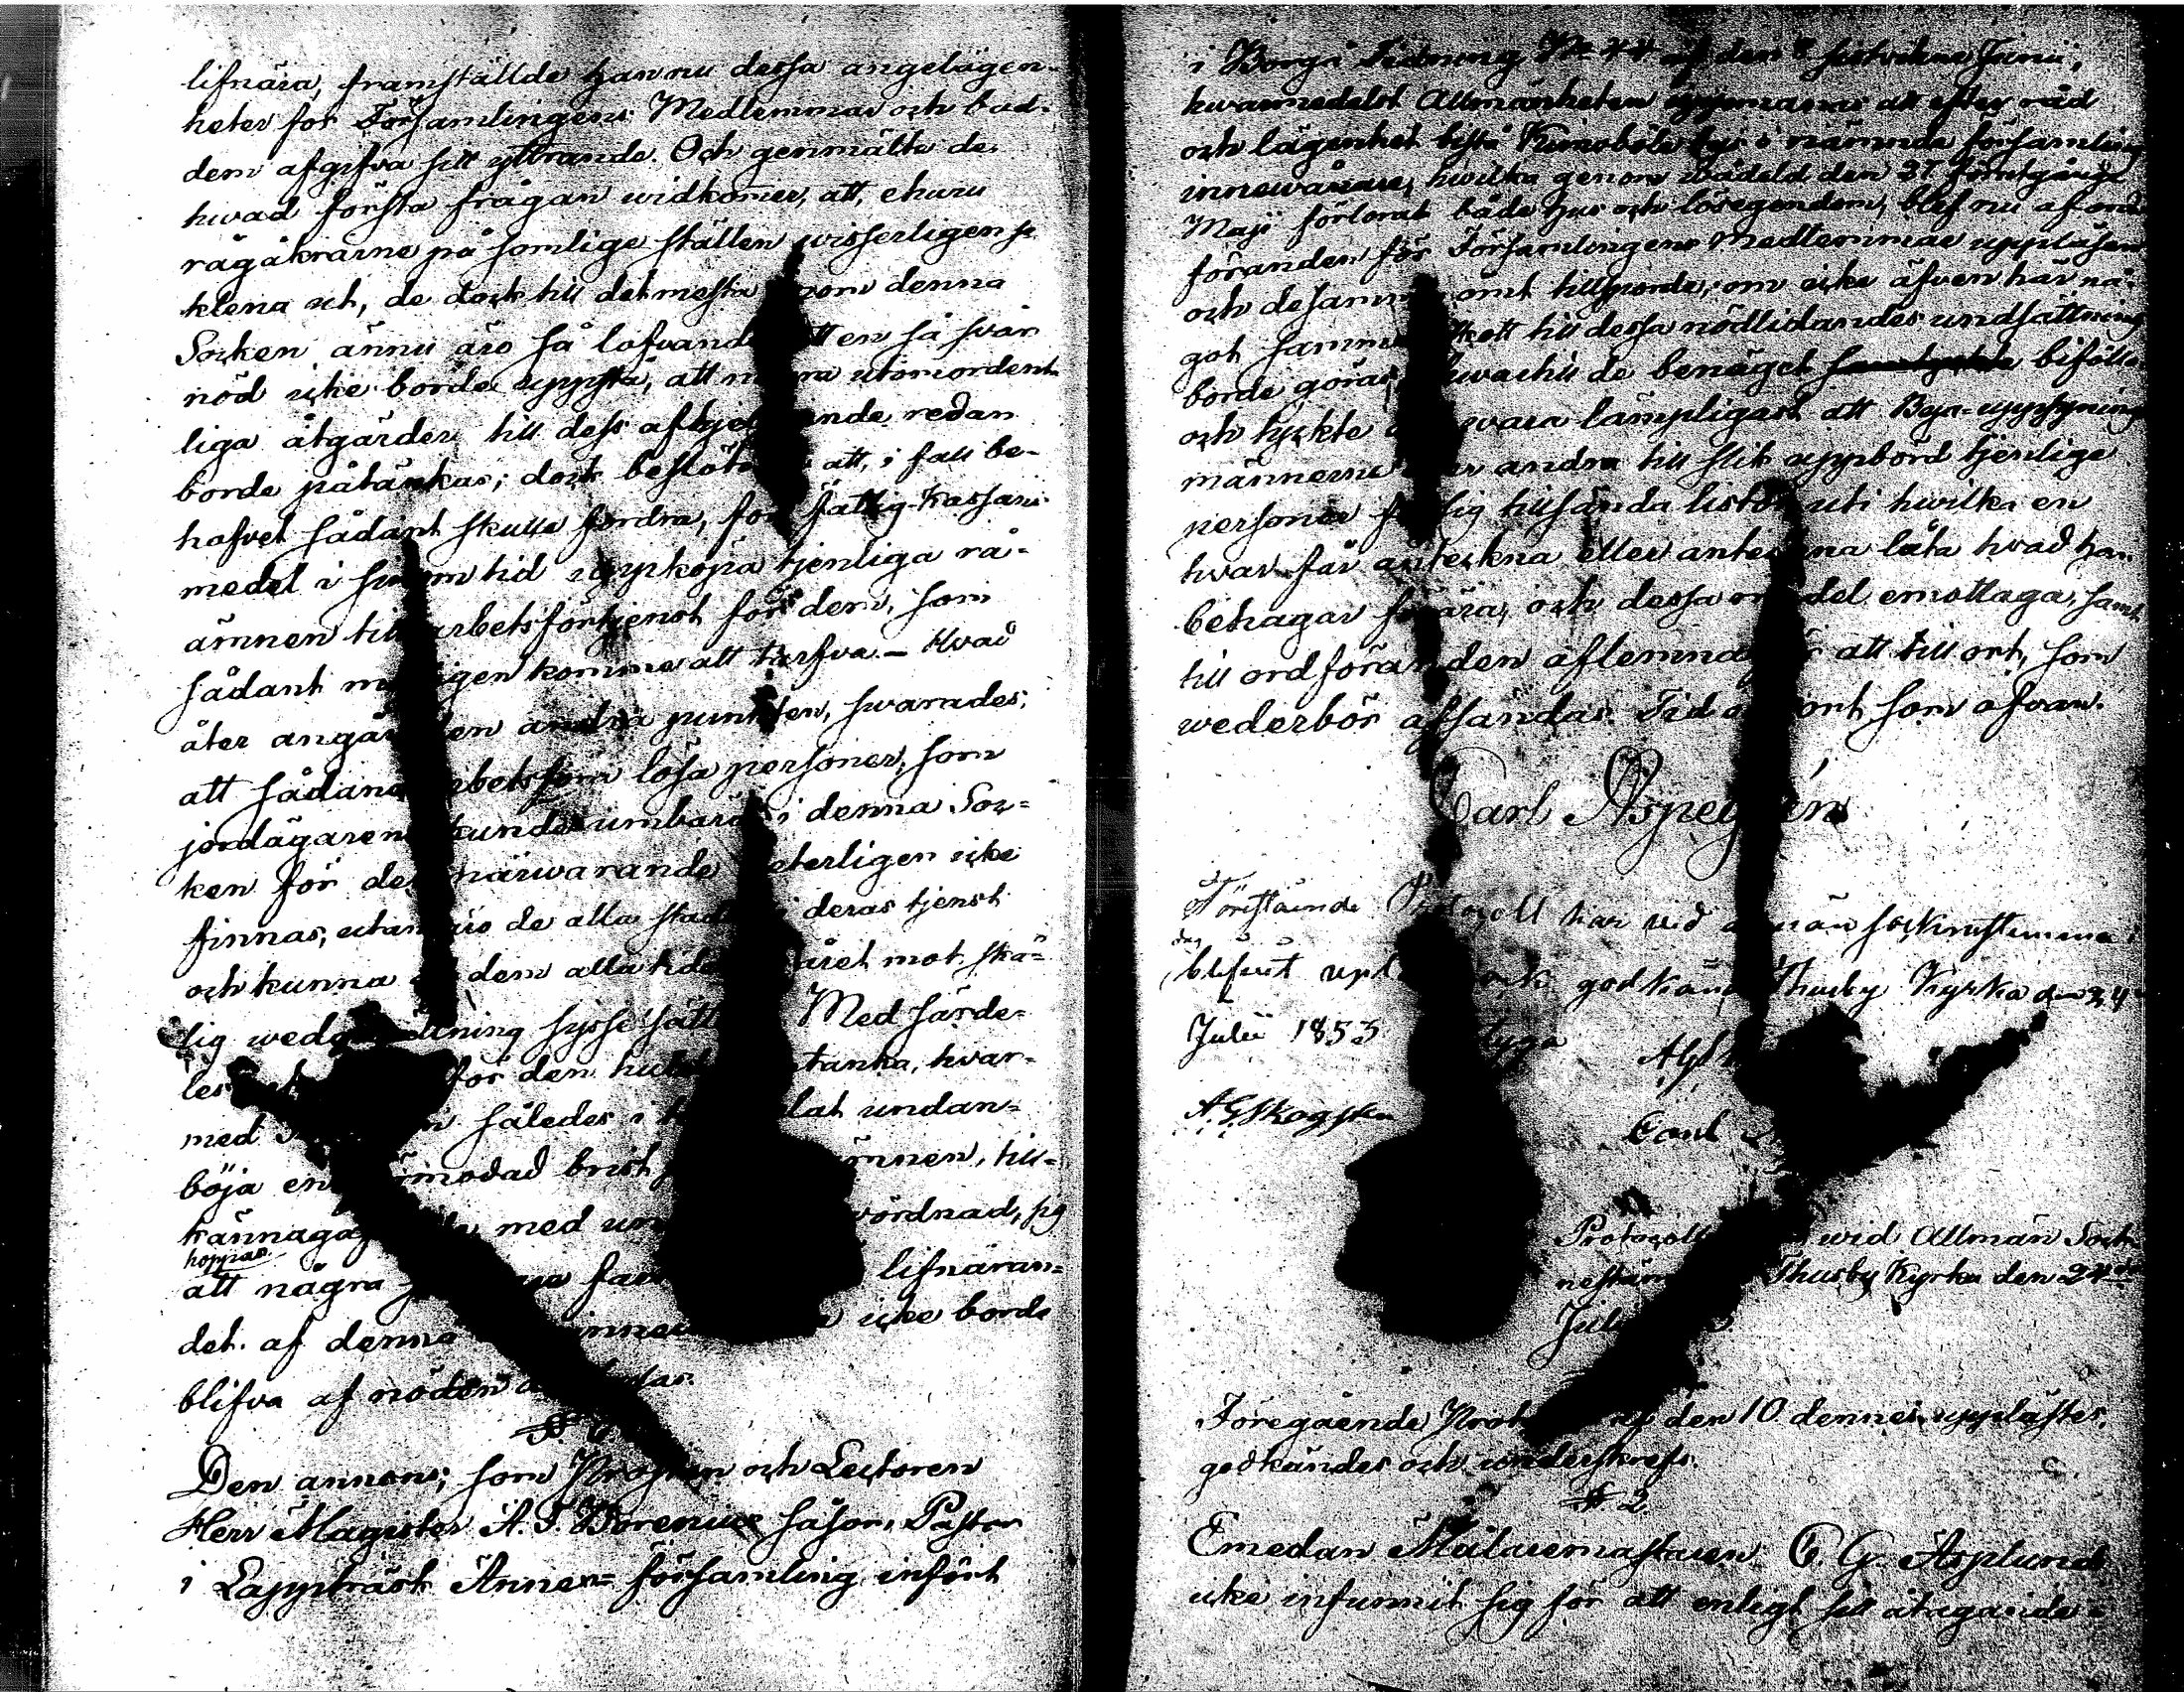 lifnära, framställde han nu dessa angelägen-
heter för Församlingens Medlemmar och bad
dem afgifva sitt yttrande. Och genmälte de,
hvad första frågan widkomer, att, ehuru
rågåkrarne på somlige ställen wisserligen se
klena ut, de dock till det mesta inom denna
Socken ännu äro så lofvande att en så svår
nöd icke borde uppstå, att några utomordent-
liga åtgärder till dess afhjelpande redan
borde påtänkas; dock beslöts att, i fall be-
hofvet sådant skulle fordra, för Fattig-Kassans
medel i sinom tid uppköpa tjenliga rå-
ämnen till arbetsförtjenst för dem, som
sådant möjligen komma att tarfva. – Hvad
åter angår den andra punkten, svarades,
att sådane arbetsföra lösa personer, som
jordägarene kunde umbära i denna Soc-
ken för det närwarande weterligen icke
finnas, utan äro de alla stadde i deras tjenst
och kunna af dem alla tider året mot skä-
lig wedergällning sysselsättas Med särde-
les för den tanka, hvar-
med således i undan-
böja en förmodad brist ämnen, till-
kännaga med wördnad, sig
hoppas
att några lifnäran-
det af denna icke borde
blifva af nöden
§
Den annons, som Prosten och Lectoren
Herr Magister A. J. Borenius såsom Pastor
i Lappträsk Ännex-församling infört
i Borgå Tidning No 44 af den 8 sistvikne Junii,
hvarmedelst Allmänheten uppmanas att efter råd
och lägenhet bistå Kimoböle bys i nämnde församling
innewånare, hwilka genom wådeld den 27 förutgångne
Maji förlorat både hus och lösegendom, blef nu af ord-
föranden för Församlingens Medlemmar uppläsen
och desamma ömt tillsporde, om icke äfven här nå-
got sammanskott till dessa nödlidandes undsättning
borde göras, hwartill de benäget biföllo
och tyckte det wara lämpligast att Bya-uppsynings
männerne eller andra till slik uppbörd tjenlige
personer få sig tillsända listor uti hwilka en
hvar får anteckna eller anteckna låta hvad han
behagar förära, och dessa medel emottaga, samt
till ordföranden aflemna för att till ort, som
wederbör afsändas. Tid och ort som ofvan.
Carl Aspegrén
Förestående Protocoll har vid allmän sockenstemma
blifvit upläst och godkändt Thusby Kyrka den 24
Julii 1853
A. G. Skogster
Carl
Protocoll wid Allmän Sock-
nestämma Thusby Kyrka den 24
Julii
Föregående Protocoll af den 10 dennes, upplästes,
godkändes och underskrefs.
§ 2
Emedan Målaremästaren C. G. Asplund
icke infunnit sig för att enligt sitt åtagande